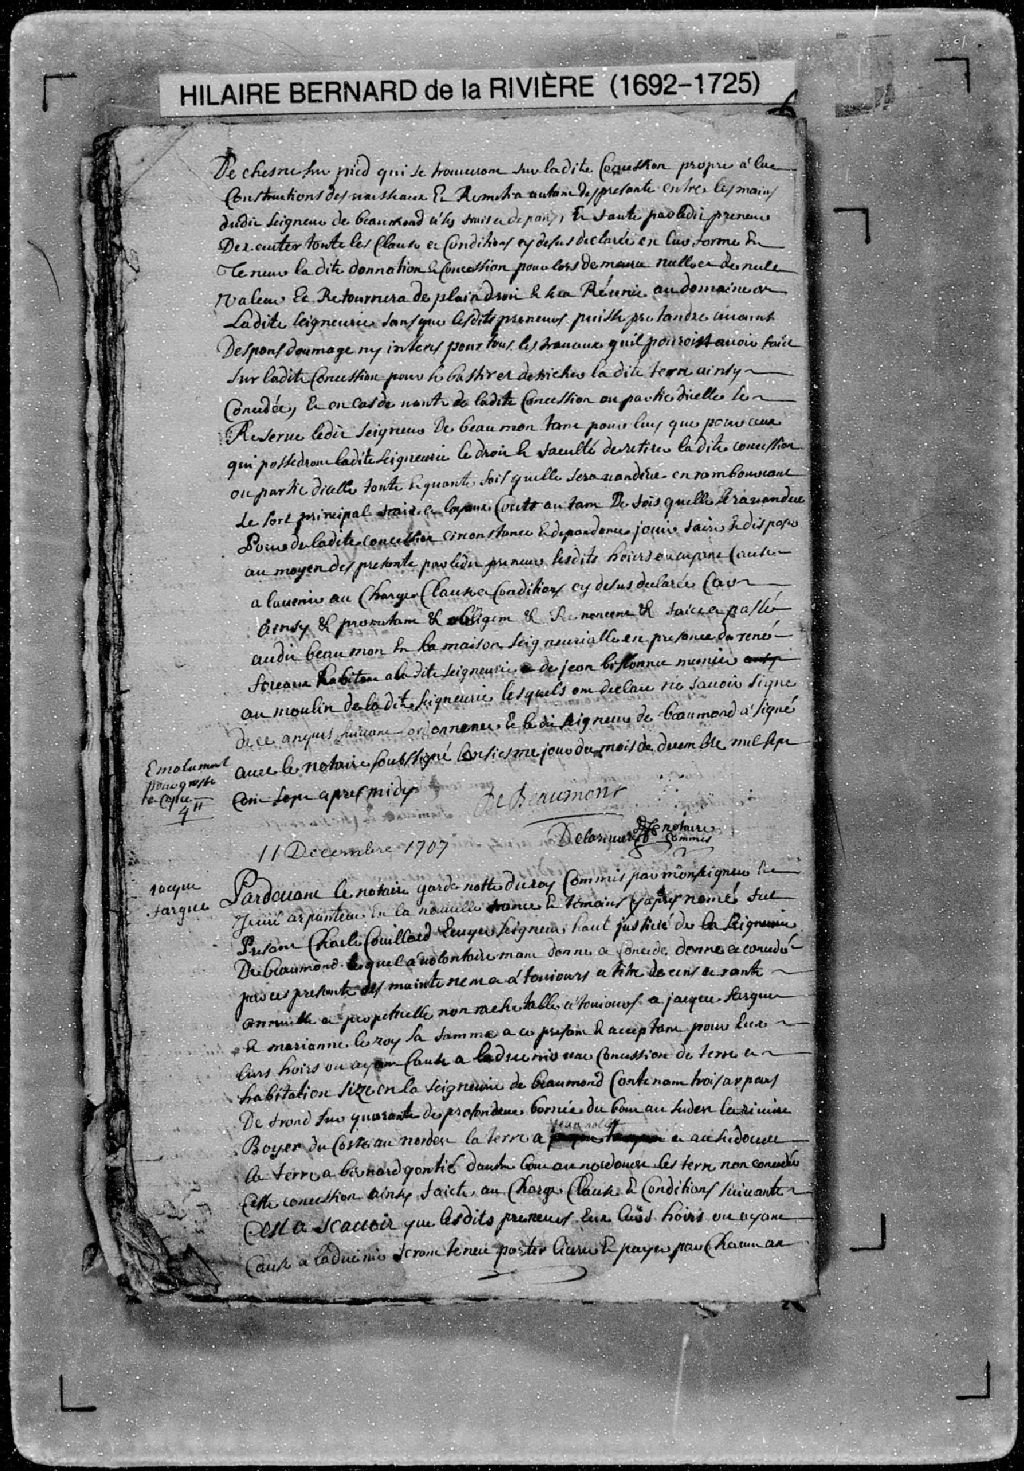 HILAIRE BERNARD de la RIVIÈRE (1692-1725)
De chesne sur pied qui se trouveront sur ladite Concession propre à lae
Constructions des vaisseaux Et Remettra autant des presente entre les mains
dudit seigneur de beaumond à ses frais et depans, Et faute par ledit preneur
Dexecuter toute les Clause et Conditions cy desus declarée en leur forme Et
Teneur la dite donnation & Concession pour lors demeure nulle et de nule
valeur Et Retournera de plain droit & sera Réunie au domaine de
Ladite seigneurie sans que lesdits preneurs puisse pretandre aucuns
Despans doumage ny interes pour tous les travaux quil pouroist avoir faict
sur ladite Concession pour se bastir et defricher la dite terre ainsy
Concedée, Et en cas de vante de ladite Concession ou partie dicelle se
Reserve ledit seigneur De beaumon tant pour luy que pour ceux
qui possedront ladite seigneurie le droit & faculté de retirer la dite concession
ou partie dicelle toute & quante fois quelle sera vandue en rambourcant
Le sort principal frais et loyaux Couts autant De fois quelle sera vandue
Pour de ladite concession circonstance & dependance jouir faire & disposer
au moyen des presente par ledit preneur lesdits hoirs ou ayant Cause
a lavenir au Charges Clause et Conditions cy desus declarée Car
Ainsy & promettant & obligent & Renoncent & faict et passé
audit beaumon En la maison seigneurialle en presence de rené
foreau habitan a ladite seigneurie et de jean bissonnet munier
au moulin de la dite seigneurie lesquels ont declaré ne savoir signé
de ce anquis suivant ordonnence & le dit seigneur de beaumond a signé
avec le notaire soubsigné lonsiesme jour du mois de decembre mil sept
Cent sept apres midy
Emolument
pour grosse
et Copie
4ᴴ
De Beaumont
Delariviere notaire
Commis
11 Décembre 1707
jacque
fargue
Pardevant le notaire garde notte du roy Commis par monseigneur &
Juré arpanteur En la nouvelle france & temoins cy apres nomé fut
Presant Charle Couillard Ecuyer seigneur haut justicié de la seigneurie
De beaumond lequel a volontairemant donné a Concede donne et concede
par ces presente des maintenent et a toujours a titre de cens et rante
annuelle et perpetuelle non rachetable a toujours a jacque fargue
& marianne le roy sa famme a ce presant & acceptant pour Eux
leurs hoirs ou ayant Cause a ladvenir une Concession de terre et
habitation size en la seigneurie de beaumond Contenant trois arpans
De frond sur quarante de profondeur bornée du bout au sudest la riviere
Boyer du Coste au nordest la terre a jean nollet et au sudouest
la terre a bernard gontié dautre bout au nordouest les terre non concedée
Cette concession ainsy faicte au Charge Clause & Conditions suivante
Cest a scavoir que lesdits preneurs Eux leurs hoirs ou ayant
Cause a ladvenir seront teneu porter livrer & payer par Chacun an